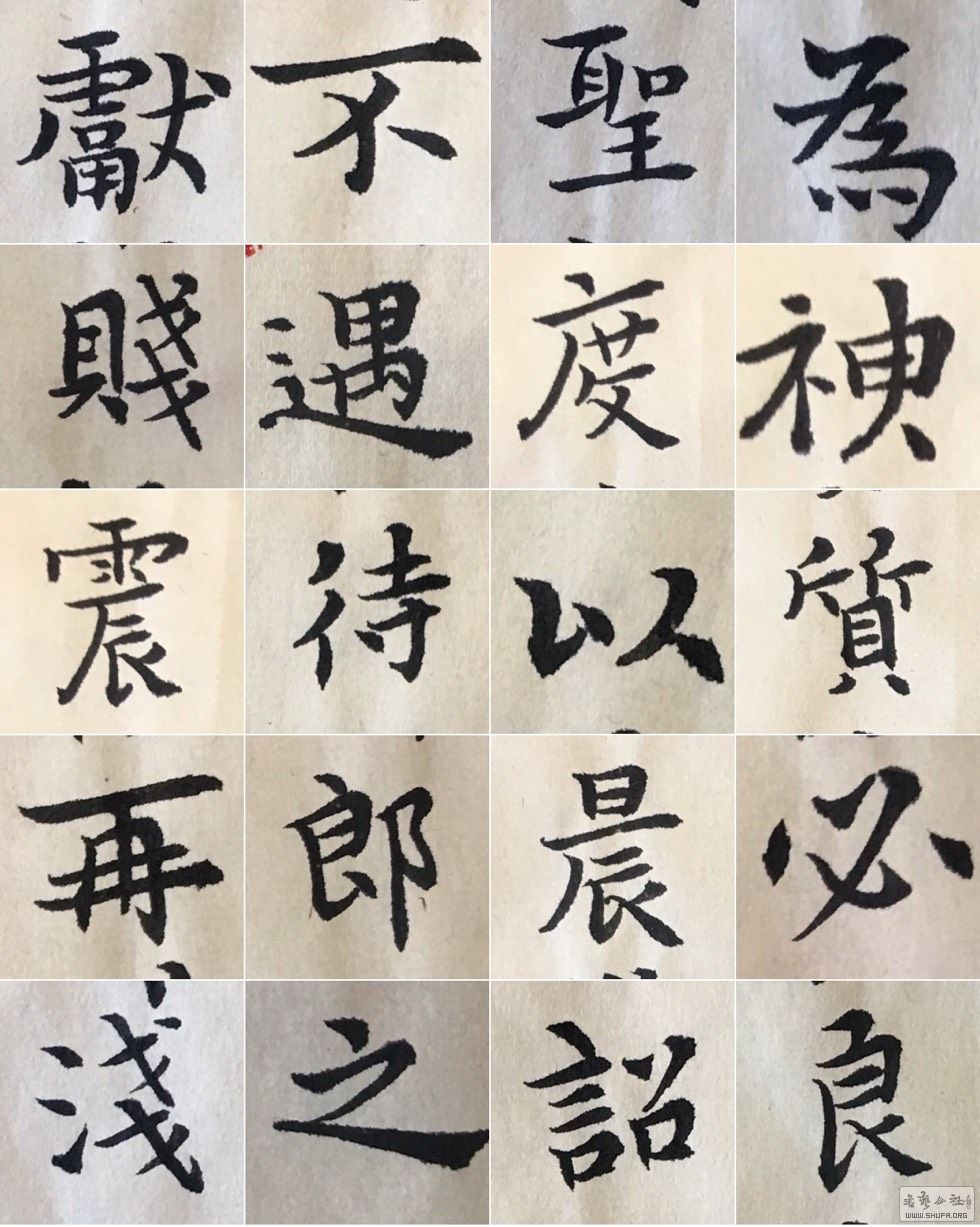 獻不聖為
賤遇度
震待以質
再郎晨必
淺之詔良
書藝公社
WWW.SHUFA.ORG